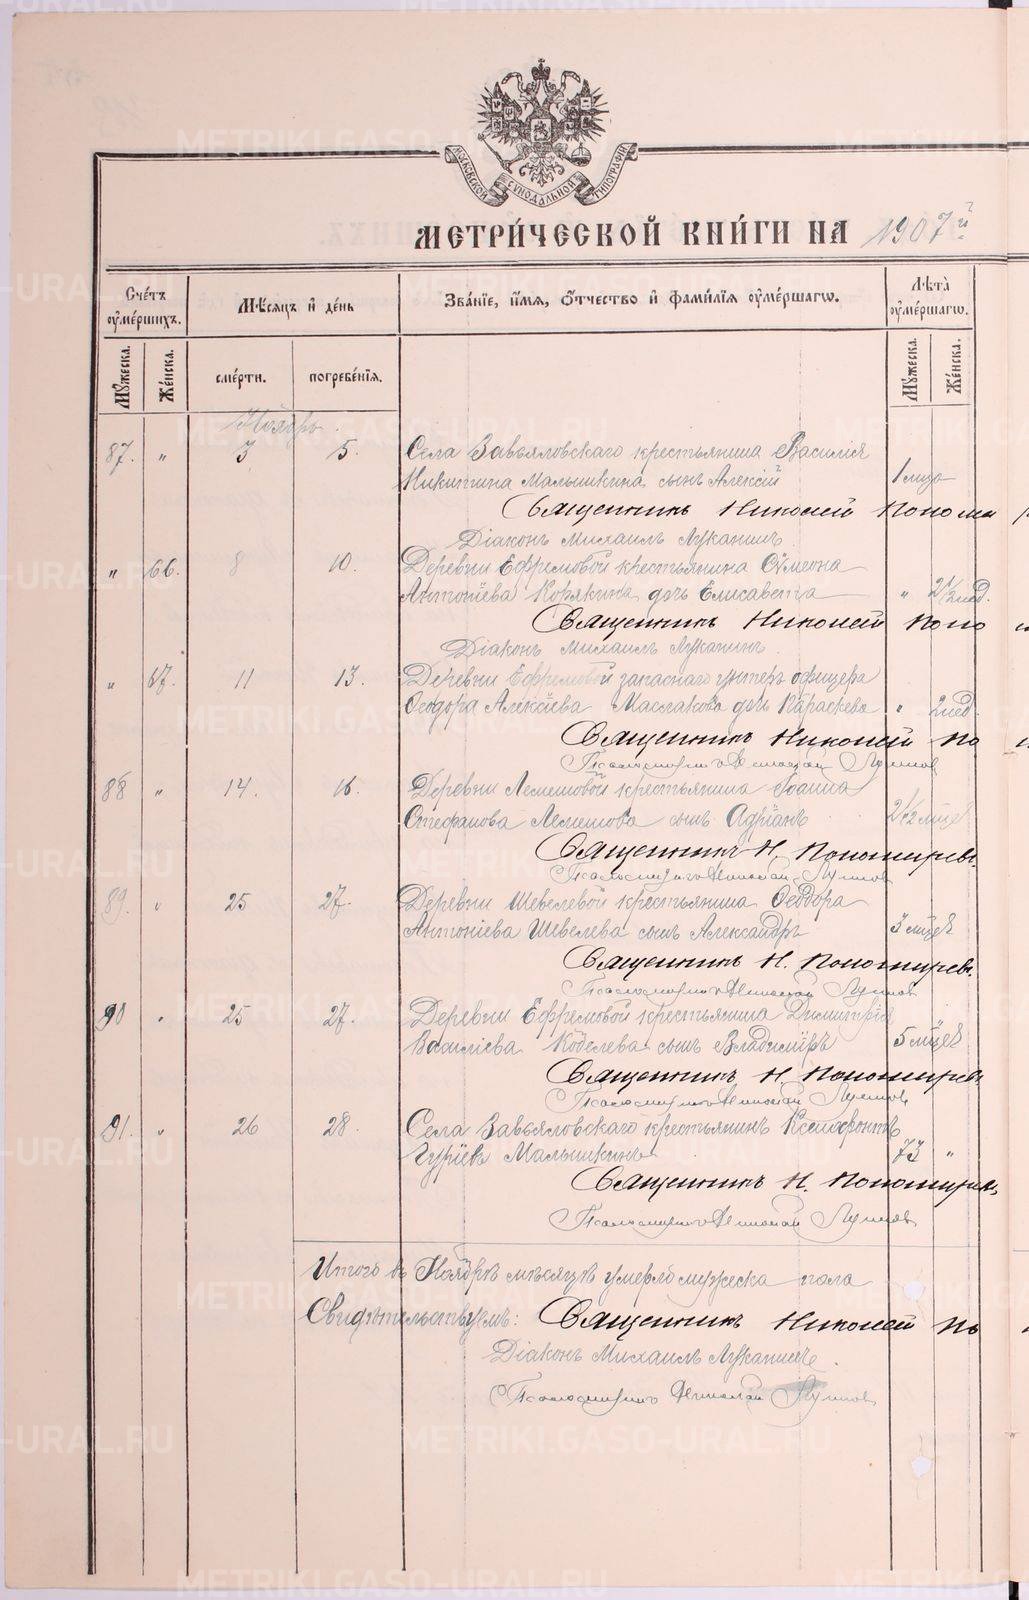 МОСКОВСКОЙ СѴНОДАЛЬНОЙ ТИПОГРАФІИ
МЕТРИ́ЧЕСКОЙ КНИ́ГИ НА 1907 й
Сче́тъ ᲂу҆ме́ршихъ.
Мѣ́сяцъ и҆ де́нь
Зва́нїе, и҆́мѧ, ѻ҆́тчество и҆ фами́лїѧ ᲂу҆ме́ршагѡ.
Лѣ́та ᲂу҆ме́ршагѡ.
Мꙋ́жеска.
Же́нска.
сме́рти.
погребе́нїѧ.
Мꙋ́жеска.
Же́нска.
Ноябрь.
87. " 3 5. Села Завьяловскаго крестьянина Василія
Никитина Малышкина сынъ Алексій
Священникъ Николай Понома
Діаконъ Михаилъ Луканинъ
" 66. 8 10. Деревни Ефремовой крестьянина Сѵмеона
Антоніева Корякина дочь Елисавета " 2 1/2 нед.
Священникъ Николай Поно
Діаконъ Михаилъ Луканинъ.
" 67. 11 13. Деревни Ефремовой запаснаго унтеръ офицера
Ѳеодора Алексіева Маслакова дочь Параскева " 2 нед.
Священникъ Николай По
Псаломщикъ Николай
88 " 14. 16. Деревни Лемешовой крестьянина Іоанна
Стефанова Лемешова сынъ Адріанъ 2 1/2 мѣс
Священникъ Н. Пономарев.
Псаломщикъ Николай
89. " 25 27. Деревни Шевелевой крестьянина Ѳеодора
Антоніева Шевелева сынъ Александръ
Священникъ Н. Пономарев.
Псаломщикъ Николай
90 " 25 27. Деревни Ефремовой крестьянина Димитрія
Василіева Кобелева сынъ Владиміръ
Священникъ Н. Пономарев
Псаломщикъ Николай
91. " 26 28. Села Завьяловскаго крестьянинъ Ксенофонтъ
Гуріевъ Малышкинъ 73 "
Священникъ Н. Пономарев
Псаломщикъ Николай
Итого въ Ноябрѣ мѣсяцѣ умерло мужеска пола
Свидѣтельствуемъ: Священникъ Николай По
Діаконъ Михаилъ Луканинъ.
Псаломщикъ Николай
METRIKI.GASO-URAL.RU